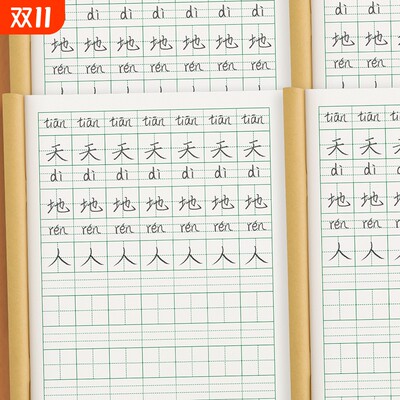 双11
dì dì dì dì
地 地 地 地 地 地 地
rén rén rén rén rén rén rén
tiān tiān tiān tiān tiān tiān tiān
天 天 天 天 天 天 天
dì dì dì dì dì dì dì
地 地 地 地 地 地 地
rén rén rén rén rén rén rén
人 人 人 人 人 人 人
dì dì
地 地
rén rén
tiān tiān
天 天
dì dì
地 地
rén rén
人 人